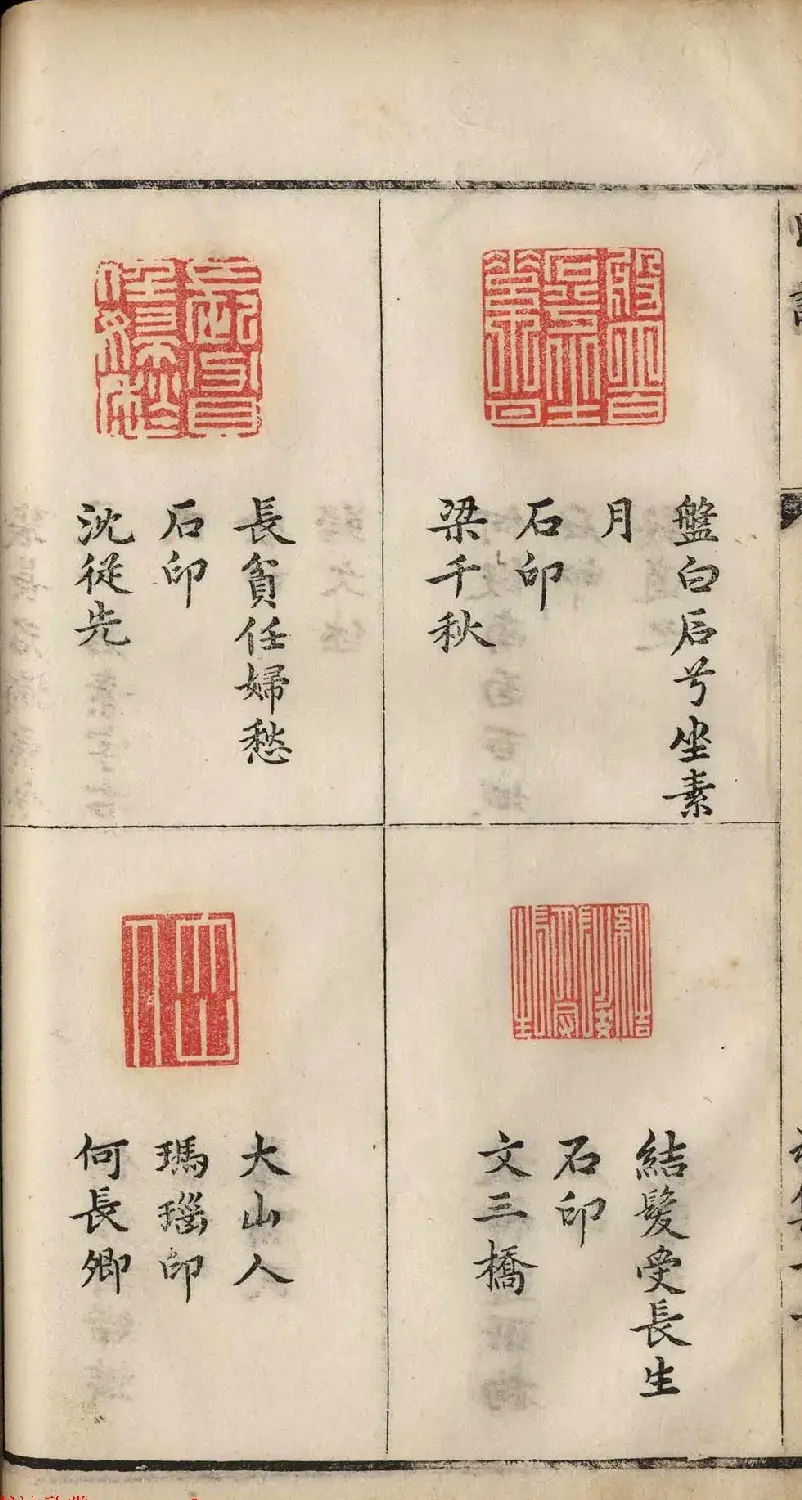 盤白石兮坐素
月
石印
梁千秋
長貧任婦愁
石印
沈從先
結髮受長生
石印
文三橋
大山人
瑪瑙印
何長卿